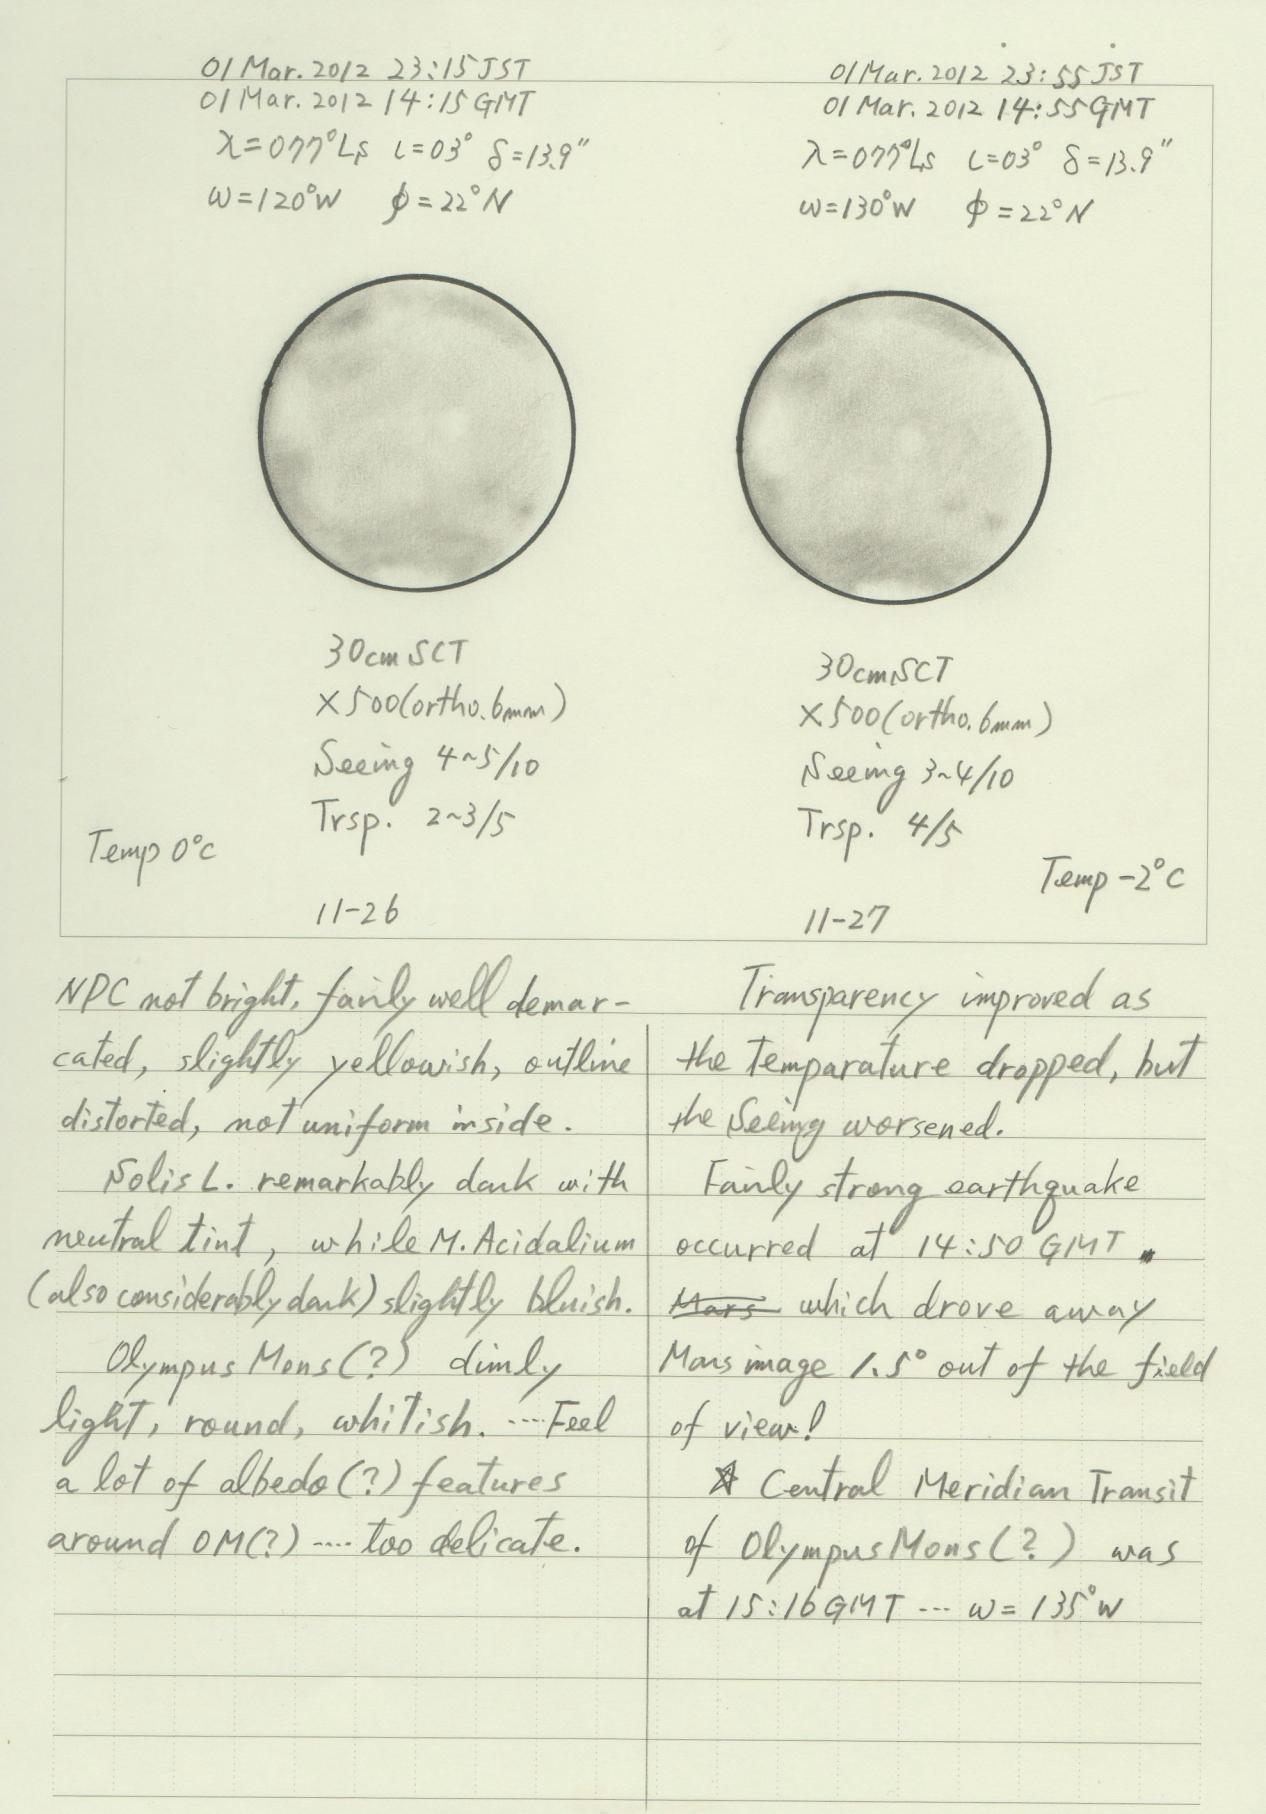 01 Mar. 2012 23:15 JST
01 Mar. 2012 14:15 GMT
λ=077°Ls ι=03° δ=13.9"
ω=120°W φ=22°N
30cm SCT
×500(ortho.6mm)
Seeing 4~5/10
Trsp. 2~3/5
Temp 0°C
11-26
01 Mar. 2012 23:55 JST
01 Mar. 2012 14:55 GMT
λ=077°Ls ι=03° δ=13.9"
ω=130°W φ=22°N
30cm SCT
×500(ortho.6mm)
Seeing 3~4/10
Trsp. 4/5
Temp -2°C
11-27
NPC not bright, fairly well demar-
cated, slightly yellowish, outline
distorted, not uniform inside.
Solis L. remarkably dark with
neutral tint, while M. Acidalium
(also considerably dark) slightly bluish.
Olympus Mons(?) dimly
light, round, whitish. ····Feel
a lot of albedo(?) features
around OM(?) ···· too delicate.
Transparency improved as
the temparature dropped, but
the Seeing worsened.
Fairly strong earthquake
occurred at 14:50 GMT
Mars which drove away
Mars image 1.5° out of the field
of view!
☆ Central Meridian Transit
of Olympus Mons(?) was
at 15:16 GMT ··· ω=135°W